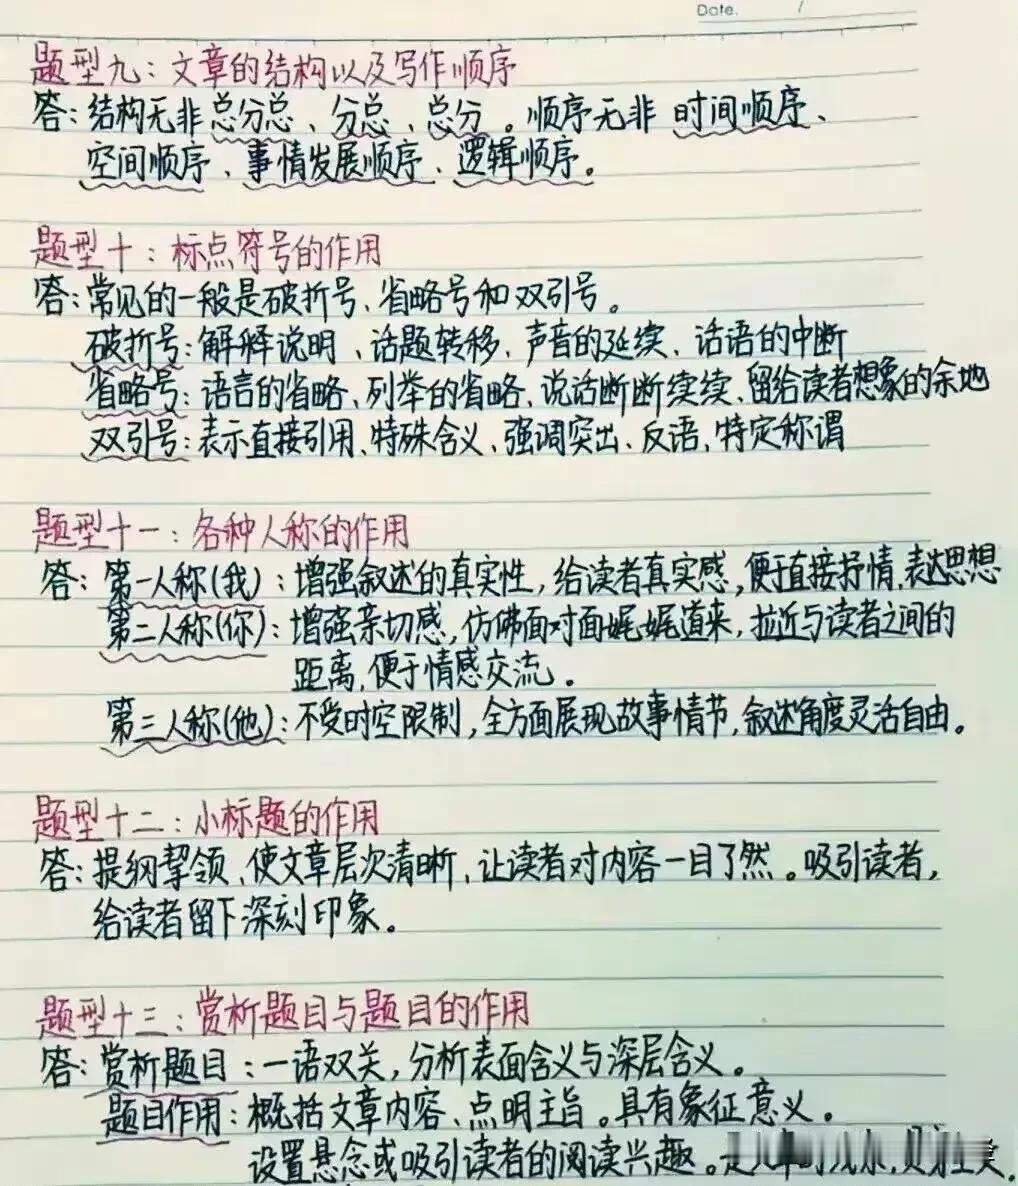 Date.
题型九:文章的结构以及写作顺序
答:结构无非总分总、分总、总分。顺序无非 时间顺序、
空间顺序、事情发展顺序、逻辑顺序。
题型十:标点符号的作用
答:常见的一般是破折号、省略号和双引号。
破折号:解释说明、话题转移、声音的延续、话语的中断
省略号:语言的省略、列举的省略、说话断断续续、留给读者想象的余地
双引号:表示直接引用、特殊含义、强调突出、反语、特定称谓
题型十一:各种人称的作用
答:第一人称(我):增强叙述的真实性,给读者真实感,便于直接抒情,表达思想
第二人称(你):增强亲切感,仿佛面对面娓娓道来,拉近与读者之间的
距离,便于情感交流。
第三人称(他):不受时空限制,全方面展现故事情节,叙述角度灵活自由。
题型十二:小标题的作用
答:提纲挈领、使文章层次清晰,让读者对内容一目了然。吸引读者,
给读者留下深刻印象。
题型十三:赏析题目与题目的作用
答:赏析题目:一语双关,分析表面含义与深层含义。
题目作用:概括文章内容、点明主旨。具有象征意义。
设置悬念或吸引读者的阅读兴趣。是